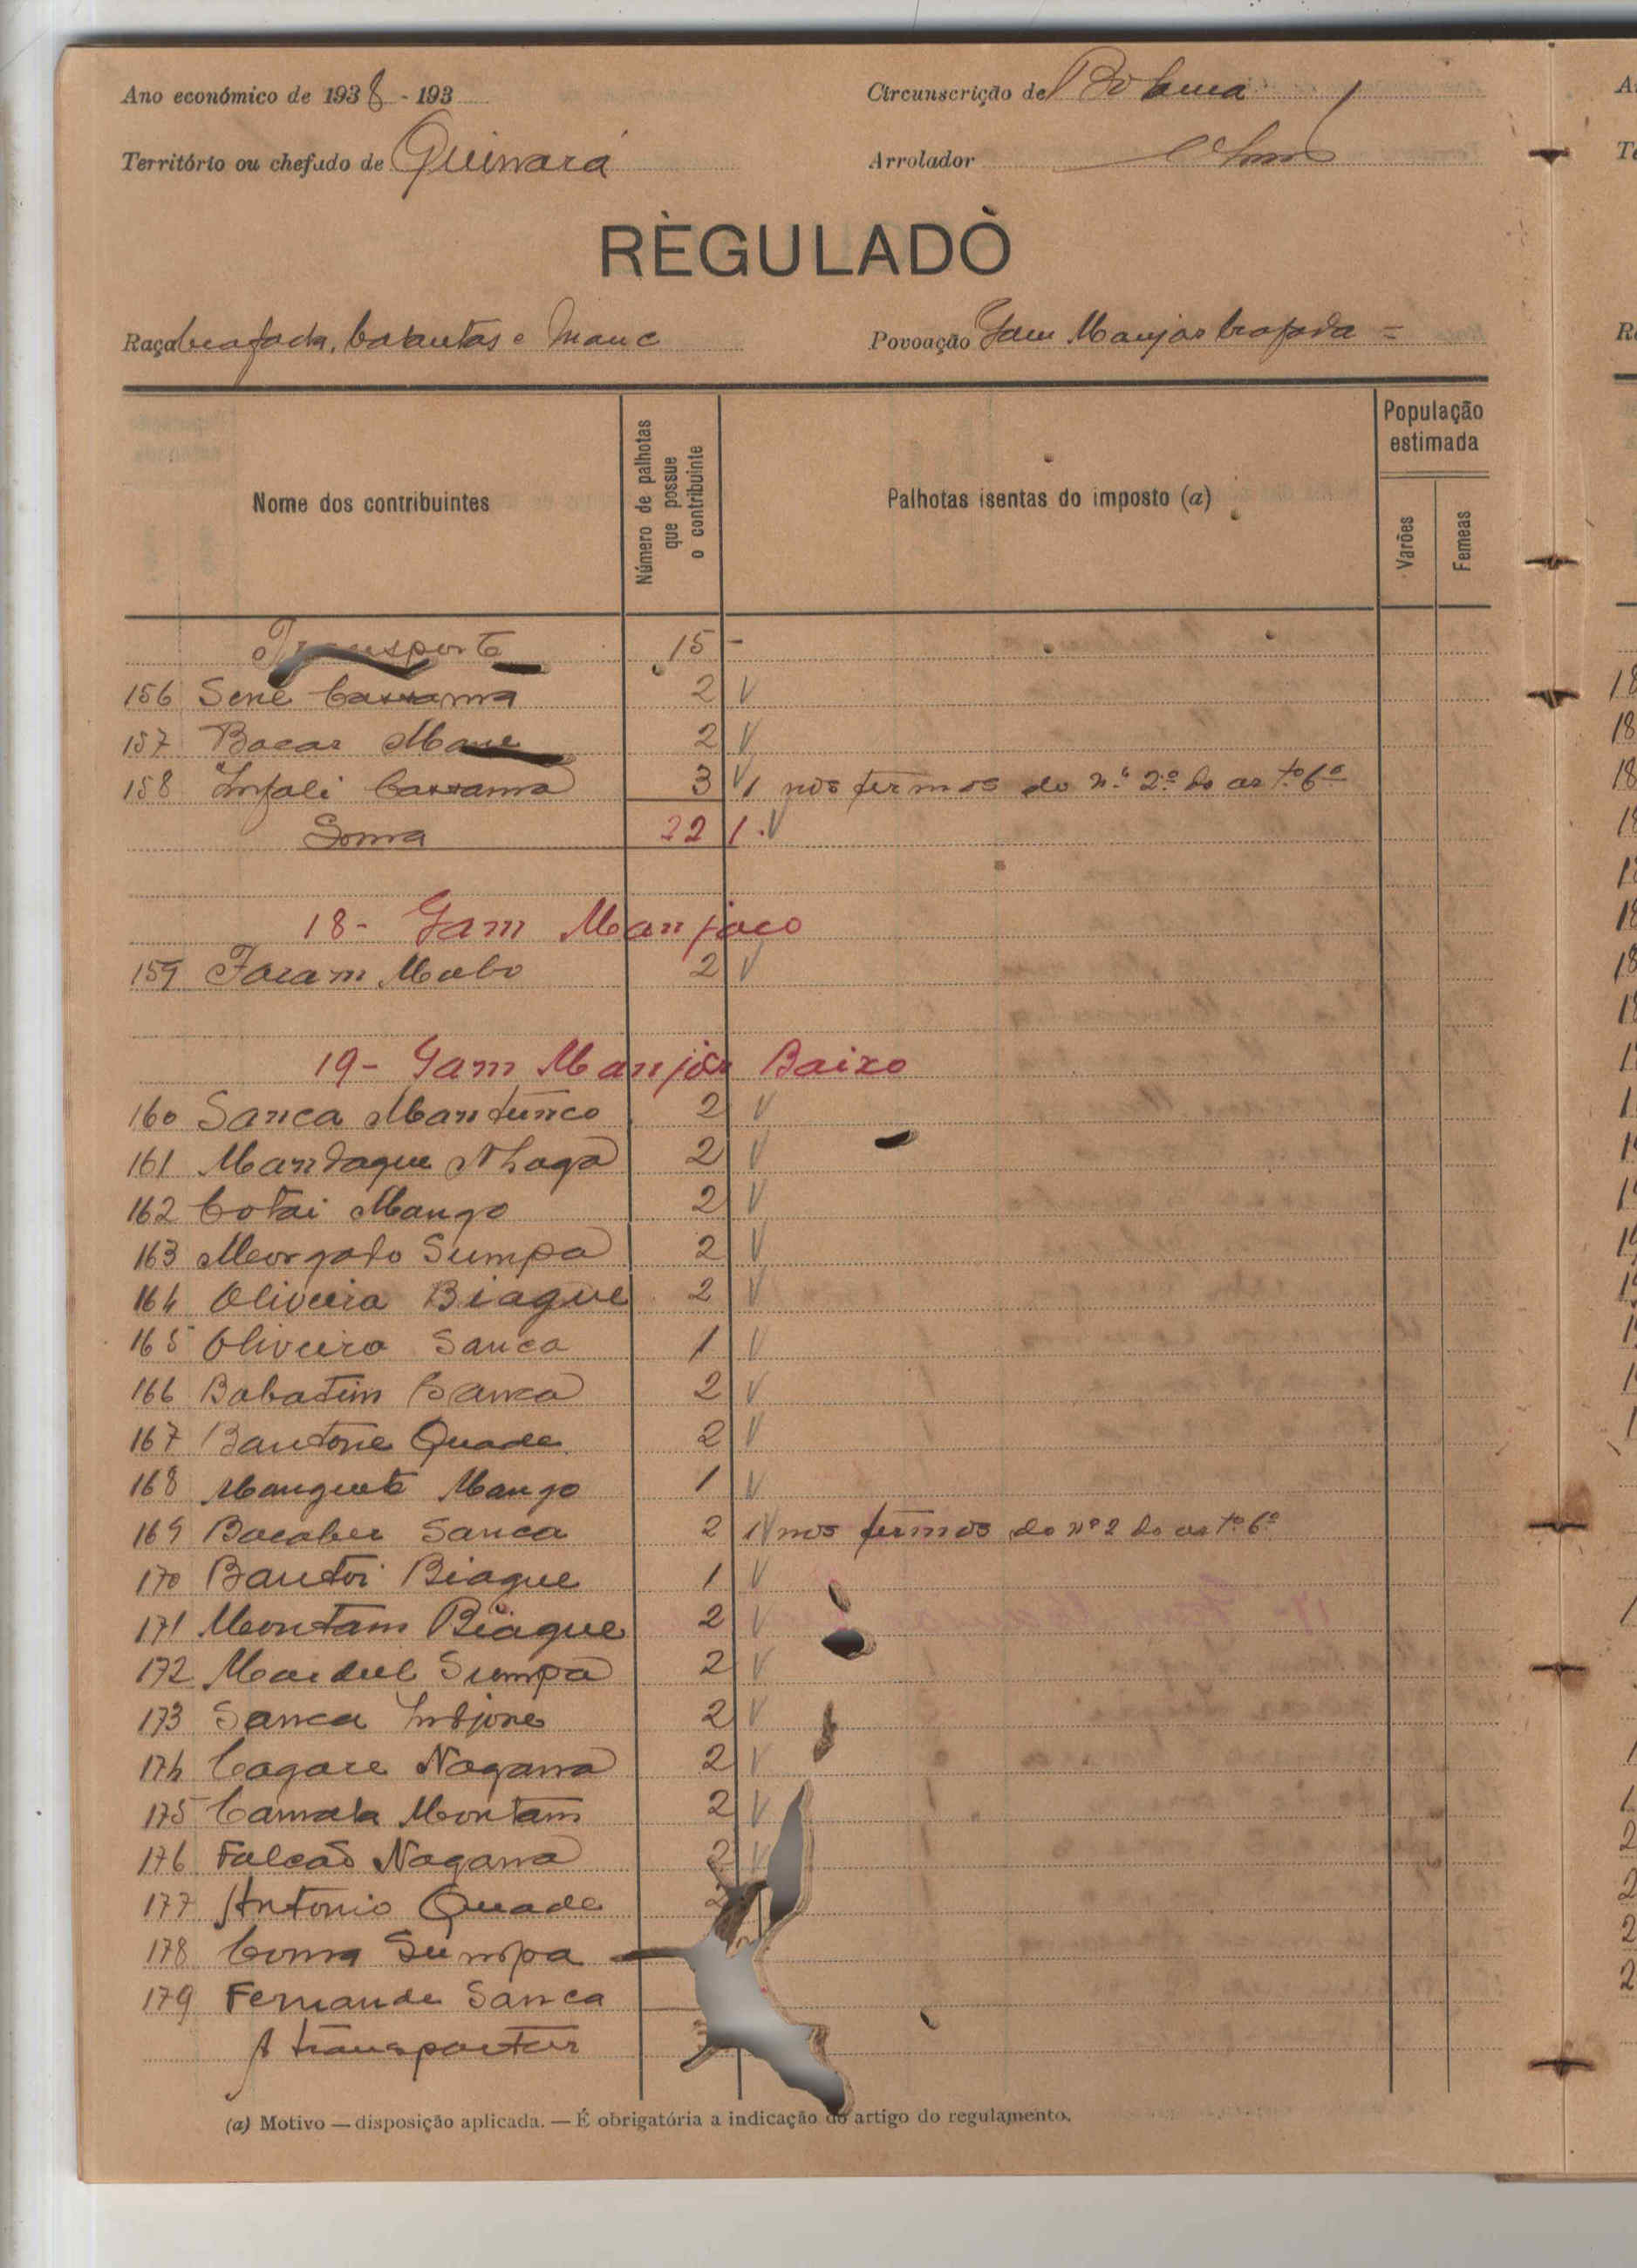 Ano económico de 1938 - 193
Circunscrição de Bolama
Território ou chefado de Quinara
Arrolador
REGULADO
Raça beafada, balantas e manc
Povoação Gam Manjor beafada =
Nome dos contribuintes
Número de palhotas que possue o contribuinte
Palhotas isentas do imposto (a)
População estimada
Varões
Femeas
Transporte 15 -
156 Sene Cassama 2 V
157 Bacar Mane 2 V
158 Infali Cassama 3 V 1 nos termos do n.º 2.º do artº 6º
Soma 22 1 V
18 - Gam Manjaco
159 Faram Mabo 2 V
19 - Gam Manjor Baixo
160 Sanca Mantunco 2 V
161 Mandaque Nhaga 2 V
162 Cotai Mango 2 V
163 Morgado Sumpa 2 V
164 Oliveira Biague 2 V
165 Oliveira Sanca 1 V
166 Babatim Sanca 2 V
167 Bantone Quade 2 V
168 Manguete Mango 1 V
169 Bacaber Sanca 2 1 V nos termos do nº 2 do artº 6º
170 Bantoi Biague 1 V
171 Montam Biague 2 V
172 Sumpa 2 V
173 Sanca Indjone 2 V
174 Cagare Nagana 2 V
175 Camala Montam 2 V
176 Falcão Nagana 2 V
177 Antonio Quade 2
178 Coma Sumpa
179 Fernande Sanca
A transportar
(a) Motivo — disposição aplicada. — É obrigatória a indicação do artigo do regulamento.